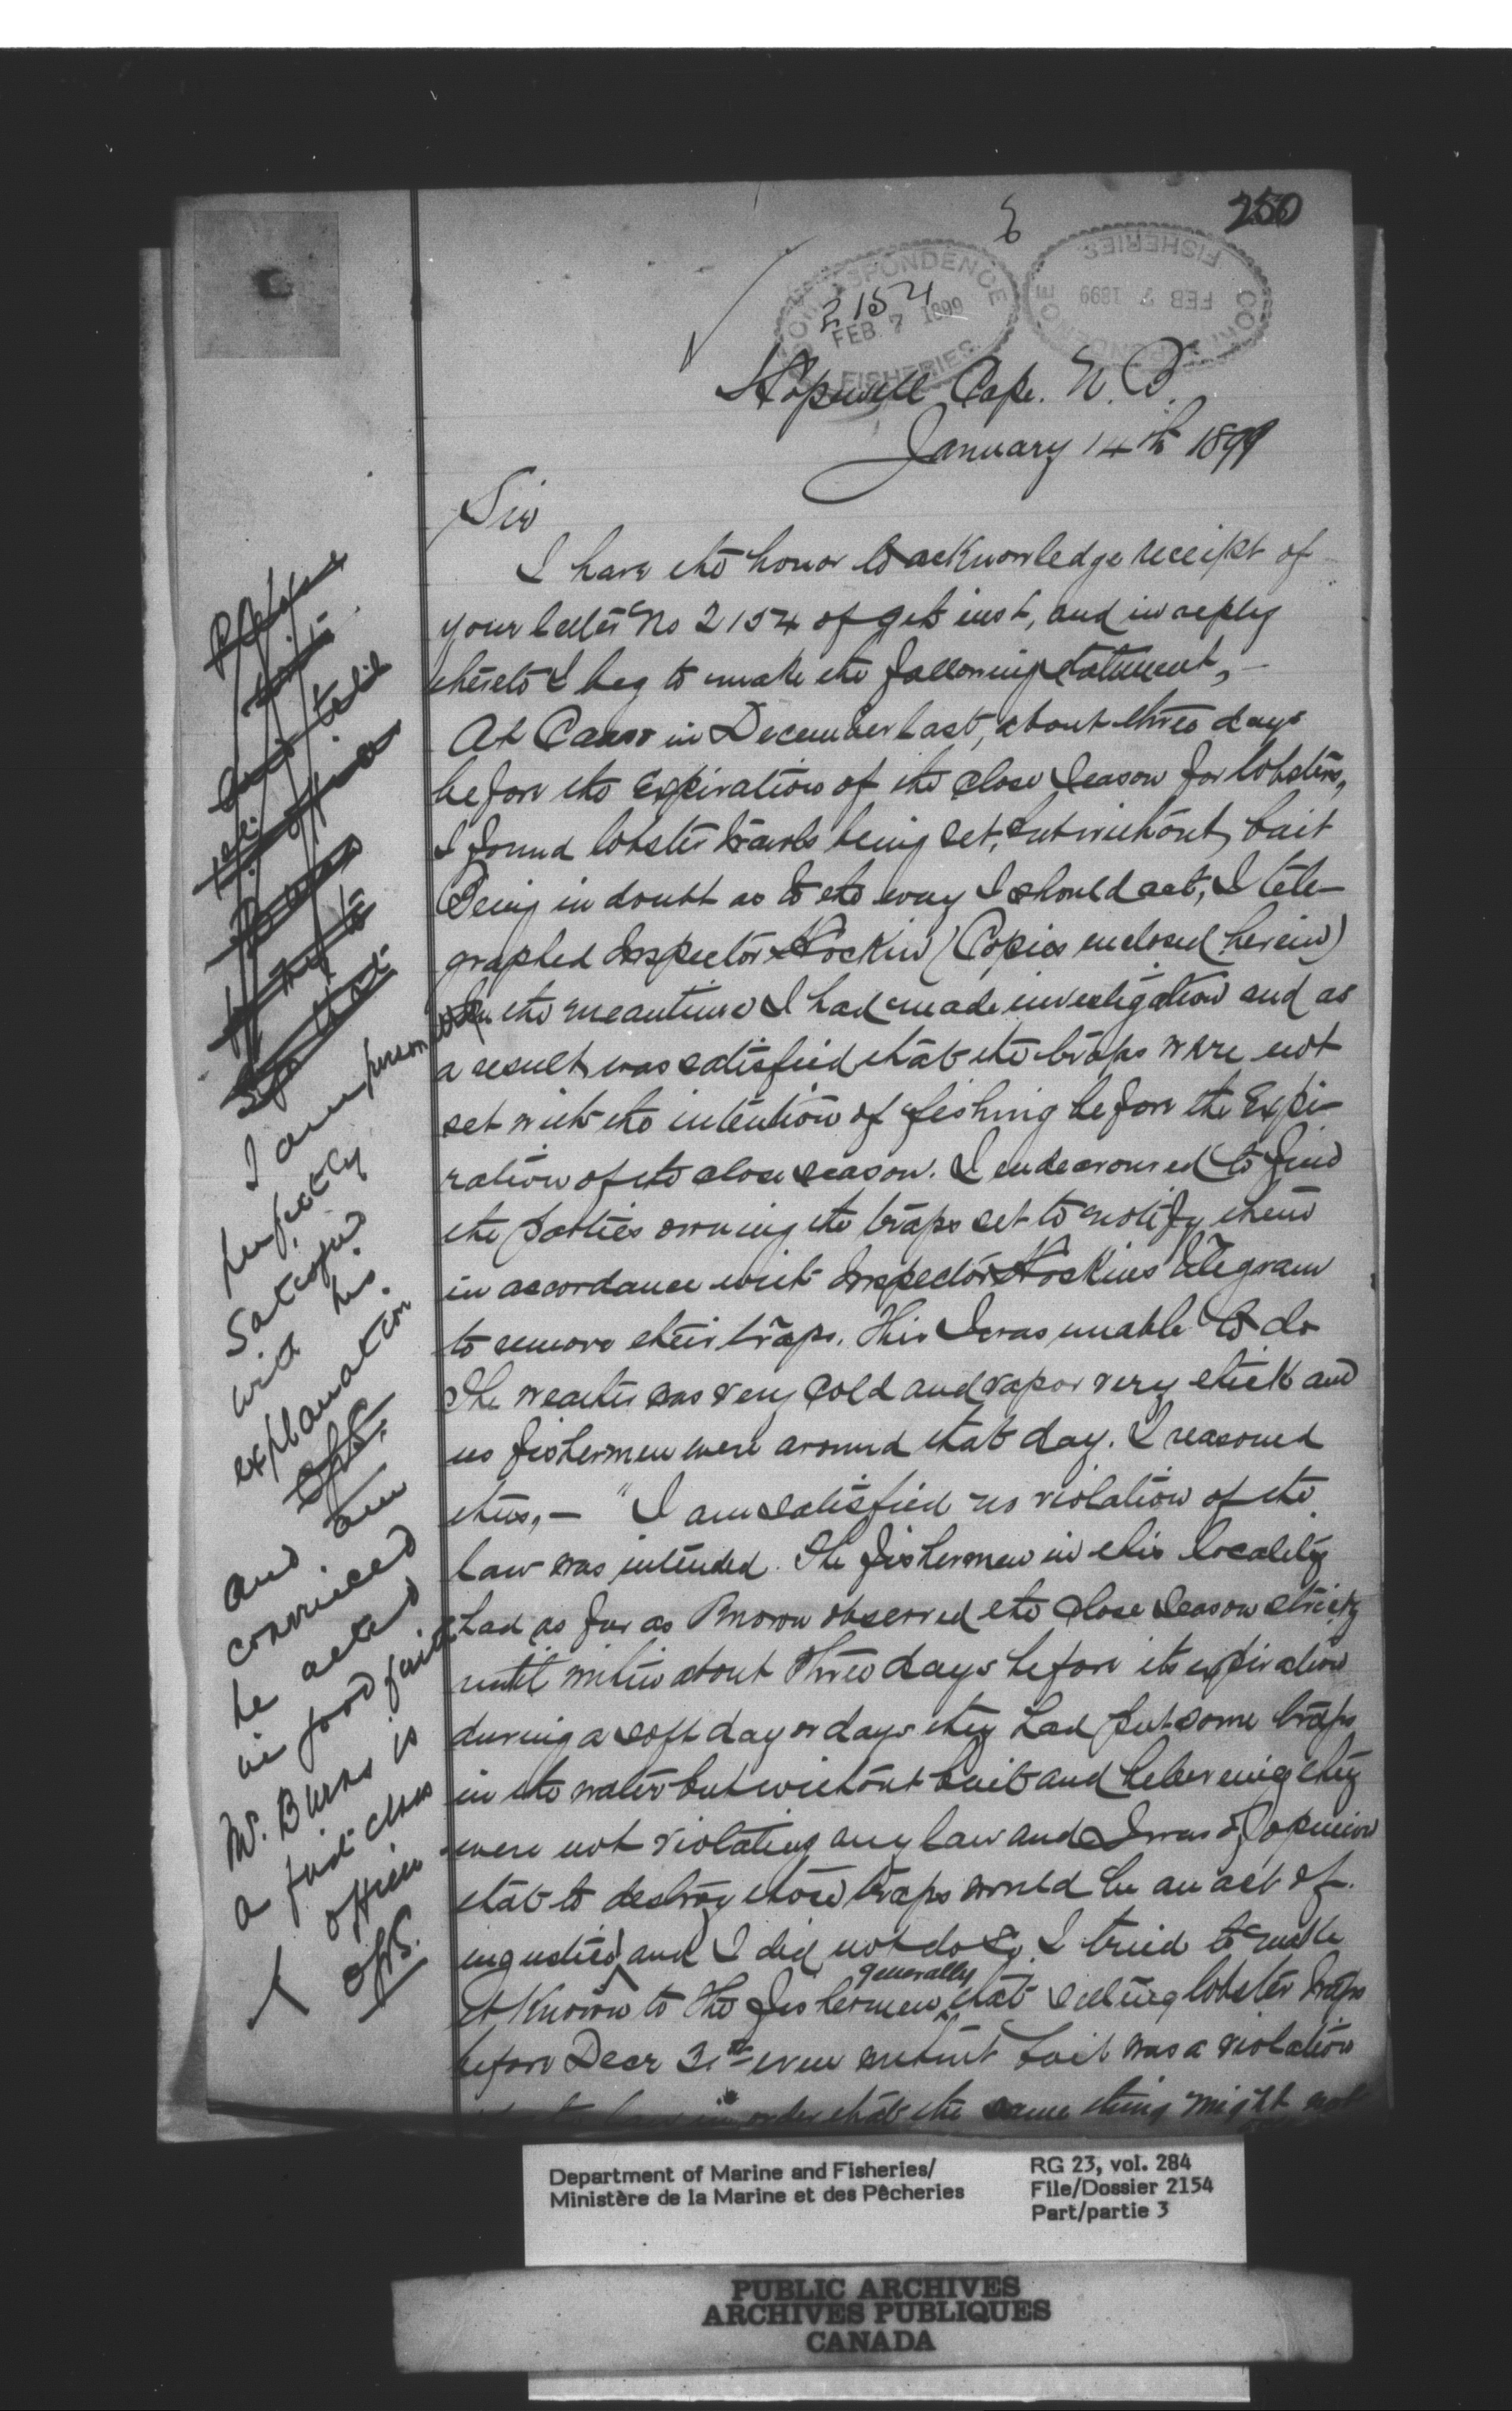 250
6
CORRESPONDENCE
2154
FEB. 7 1899
FISHERIES
CORRESPONDENCE
FEB 7 1899
FISHERIES
Hopewell Cape. N. B.
January 14th 1899
Sir
I have the honor to acknowledge receipt of
your letter No 2154 of 9th inst, and in reply
thereto I beg to make the following statement, —
At Canso in December last, about three days
before the expiration of the close season for lobsters,
I found lobster trawls being set, but without bait
Being in doubt as to the way I should act, I tele-
graphed Inspector Hockin (Copies enclosed herein)
In the meantime I had made investigation and as
a result was satisfied that the traps were not
set with the intention of fishing before the Expi-
ration of the close season. I endeavoured to find
the parties owning the traps set to notify them
in accordance with Inspector Hockins' telegram
to remove their traps. This I was unable to do
The weather was very cold and vapor very thick and
no fishermen were around that day. I reasoned
thus, — "I am satisfied no violation of the
law was intended. The fishermen in this locality
had as far as known observed the close season strictly
until within about three days before its expiration
during a soft day or days they had put some traps
in the water but without bait and believing they
were not violating any law and I was of opinion
that to destroy those traps would be an act of
injustice and I did not do so. I tried to make
it known to the fishermen generally that setting lobster traps
before Decr 31st even without bait was a violation
in order that the same thing might not
I am personally
perfectly
satisfied
with his
explanation
and am
convinced
he acted
in good faith
Mr. Burns is
a first class
officer
Department of Marine and Fisheries/
Ministère de la Marine et des Pêcheries
RG 23, vol. 284
File/Dossier 2154
Part/partie 3
PUBLIC ARCHIVES
ARCHIVES PUBLIQUES
CANADA